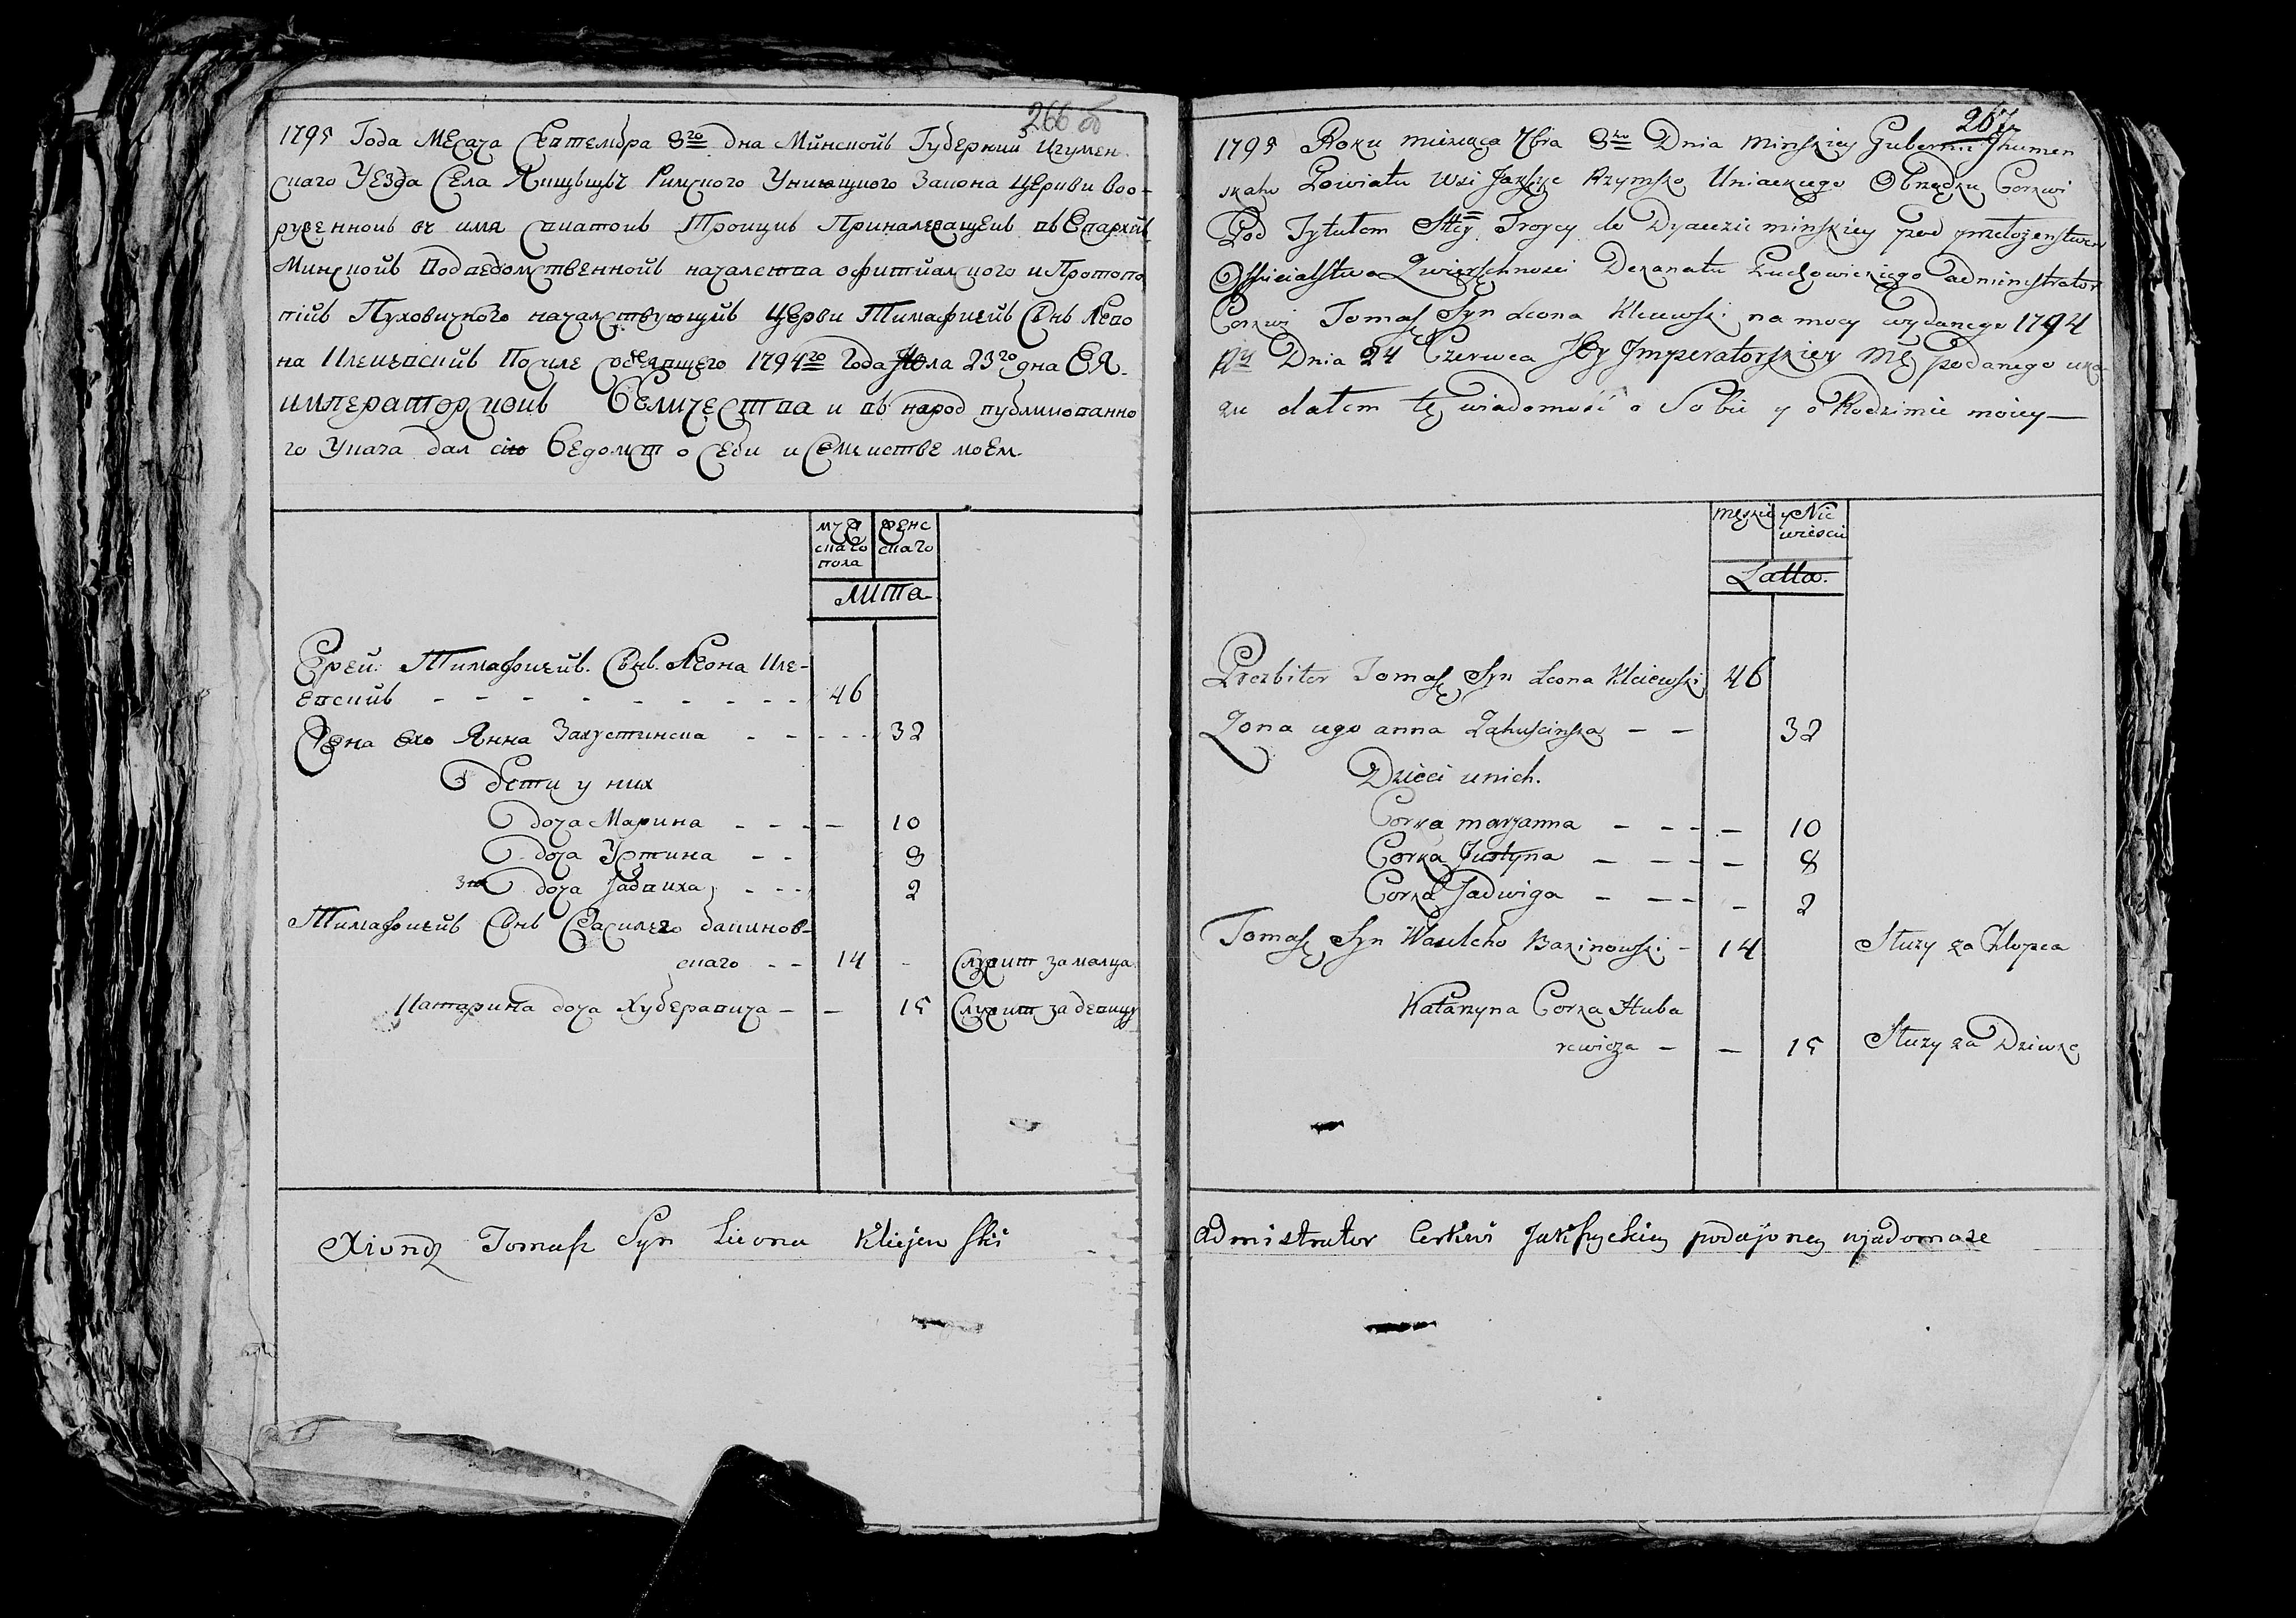 266 об
1795 Года Месаца Септембра 8го дна Минской Губерний Игумен-
скаго Уезда Села Якшыцъ Римского Уницкого Закона церкви воо-
руженной въ имя святой Тройцы Приналежащей въ Епархій
Минской Подведомственной началства офитиалского и Протопо
пій Пуховицкого началствующий Церви Тимафией Сынъ Лево
на Клеевский После 1794го Года Июла 23го дна ЕЯ
императорской Величества и въ народ публикованно
го Указа дал сию Ведомст о Себи и Семистве моем
мужскаго пола
женскаго
Лита
Ерей Тимафией Сынъ Леона Кле-
евский - - - 46
Жена его Анна Захустинска - - - 32
Дети у них
доча Марина - - - 10
доча Устина - - 9
доча Jадвиха - - - 2
Тимафией Сынъ Василего бакинов-
скаго - - 14 - Служит за малца
Катарина доча Хуберавича - - 15 Служит за девицу
Xiondz Tomasz Syn Leona Kliejewski
267
1795 Roku miesiąca 7bra 8ho Dnia Minskiey Gubernii Jhumen
skaho Powiatu Wsi Jaxszyc Rzymsko Uniackiego Obrządku Cerkwi
Pod Tytułem Stey Troycy do Dyacezii minskiey pod przełożenstwem
Officialstwa Zwierzchnosci Dekanatu Puchowickiego administrator
Cerkwi Tomasz Syn Leona Kleiewski na mocy wydanego 1794
Dnia 24 Czerwca Jey Jmperatorskiey Mę podanego uka
zu dałem tę wiadomość o Sobie y o Rodzinie moiey
męskie y Nie
wiescie
Latta
Prezbiter Tomasz Syn Leona Kleiewski 46
Zona iego anna Zahuscinska - - 32
Dzieci unich.
Corka maryanna - - - - 10
Corka Justyna - - - - 8
Corka Jadwiga - - - - 2
Tomasz Syn Wasilcho Bakinowski - 14 Słuzy za Chłopca
Katarzyna Corka Huba
rewicza - - 15 Słuzy za Dziwkę
Admistrator Cerkwi Jakszyckiey podajoncy wjadomosc